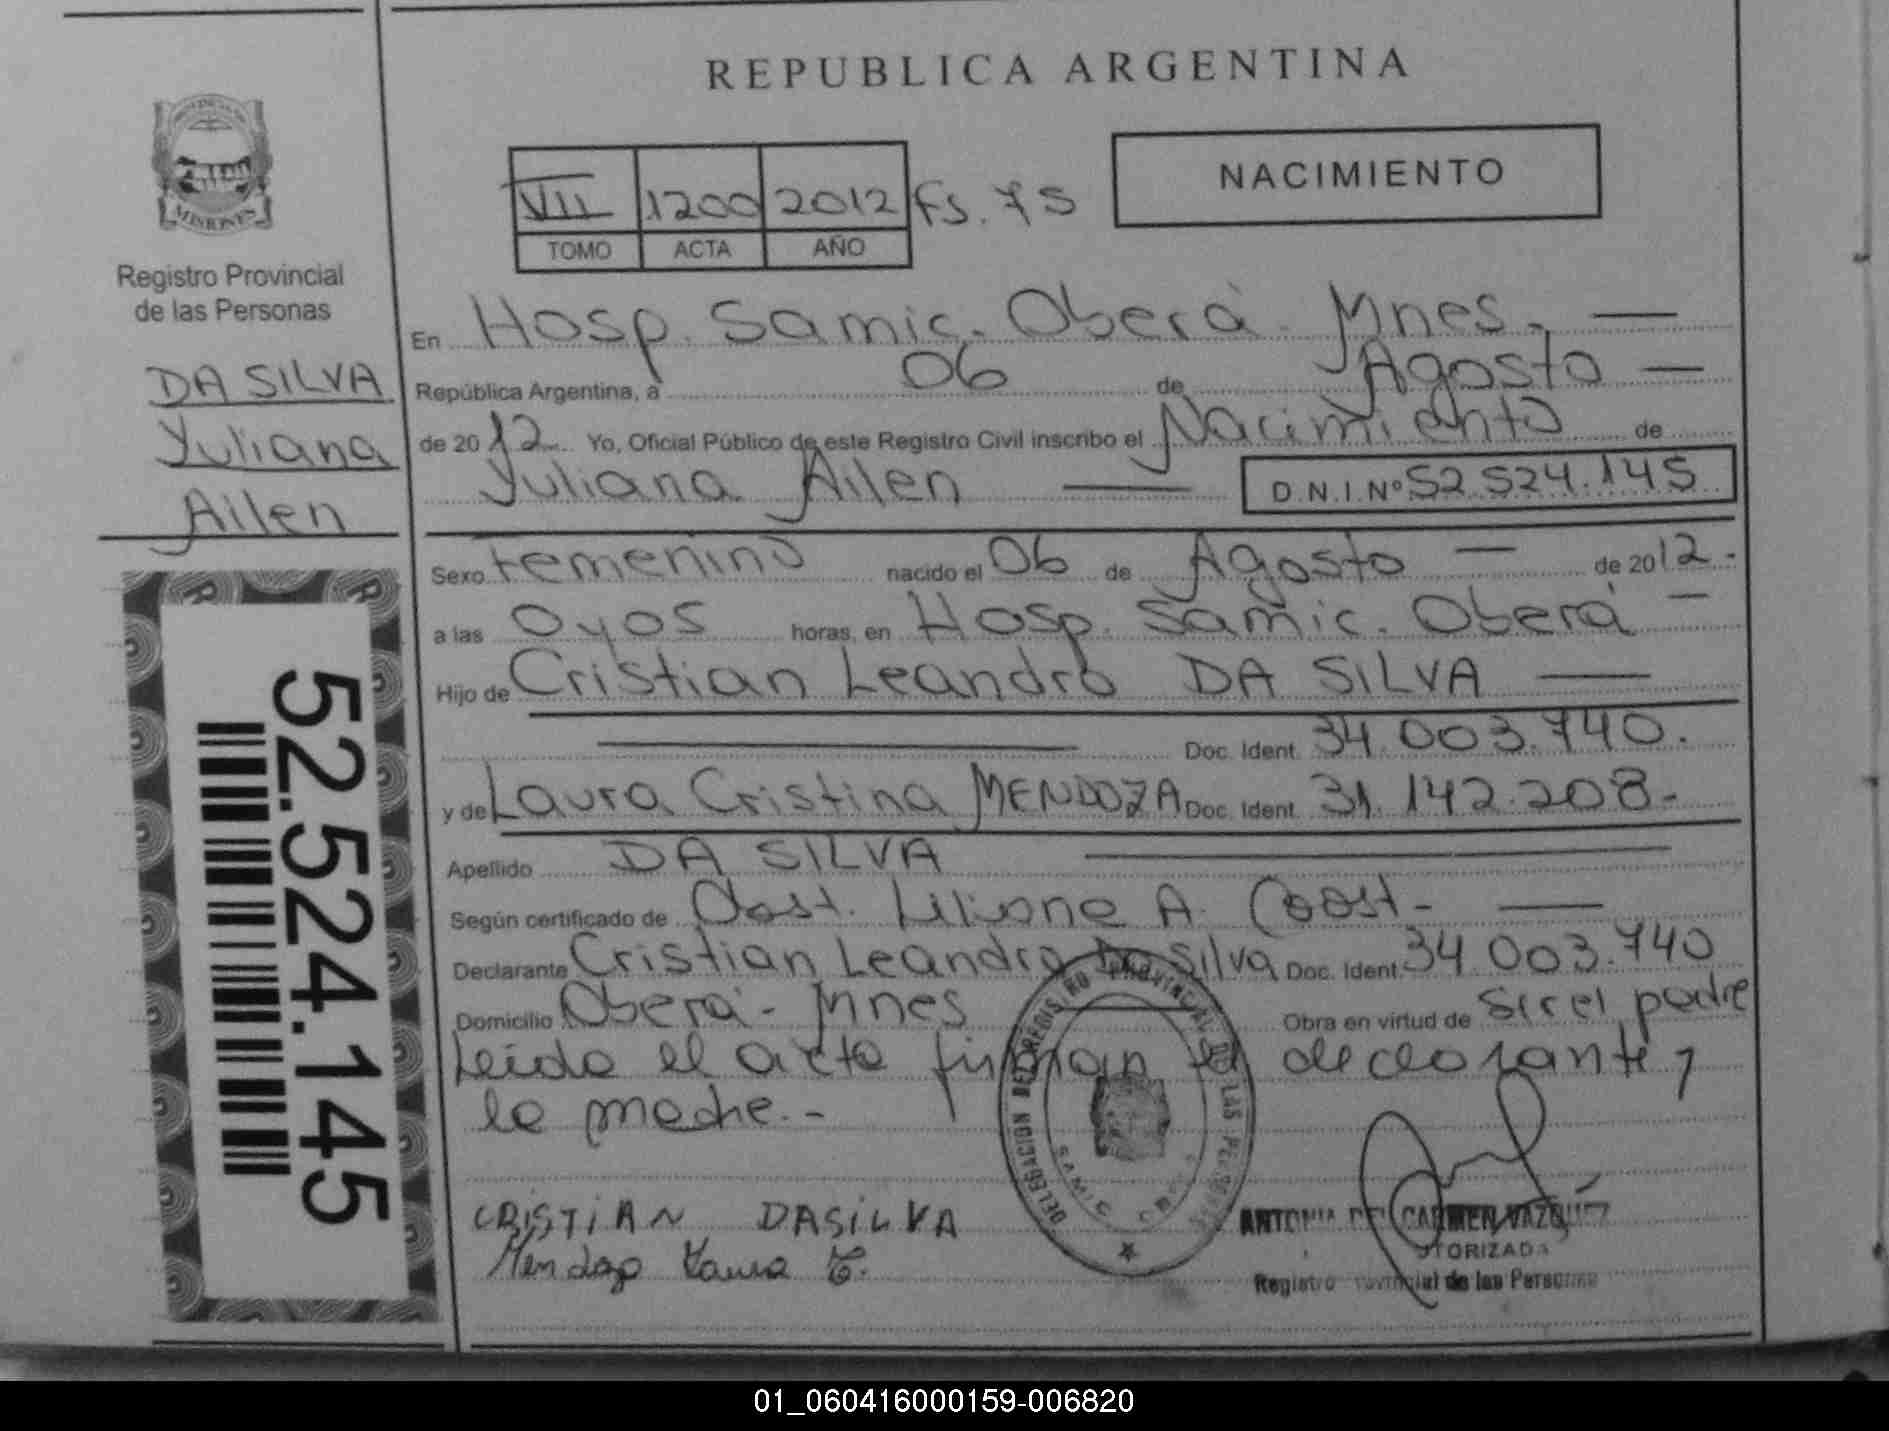 REPUBLICA ARGENTINA
NACIMIENTO
VII 1200 2012 Fs. 75
TOMO ACTA AÑO
MISIONES
Registro Provincial
de las Personas
DA SILVA
Yuliana
Ailen
52.524.145
En Hosp. Samic. Oberá. Mnes. —
República Argentina, a 06 de Agosto —
de 2012 Yo, Oficial Público de este Registro Civil inscribo el Nacimiento de
Yuliana Ailen — D.N.I.Nº 52.524.145
Sexo Femenino nacido el 06 de Agosto — de 2012.-
a las 0405 horas, en Hosp. Samic. Oberá —
Hijo de Cristian Leandro DA SILVA —
Doc. Ident. 34.003.740.
y de Laura Cristina MENDOZA Doc. Ident. 31.142.208-
Apellido DA SILVA —
Según certificado de Obst. Liliana A. —
Declarante Cristian Leandro Da Silva Doc. Ident. 34.003.740
Domicilio Oberá - Mnes Obra en virtud de ser el padre
Leida el acta firman el declarante y
la madre.-
CRISTIAN DASILVA
Mendoza Laura C.
DELEGACION DEL REGISTRO PROVINCIAL DE LAS PERSONAS
SAMIC
ANTONIA DEL CARMEN VAZQUEZ
AUTORIZADA
Registro Provincial de las Personas
01_060416000159-006820